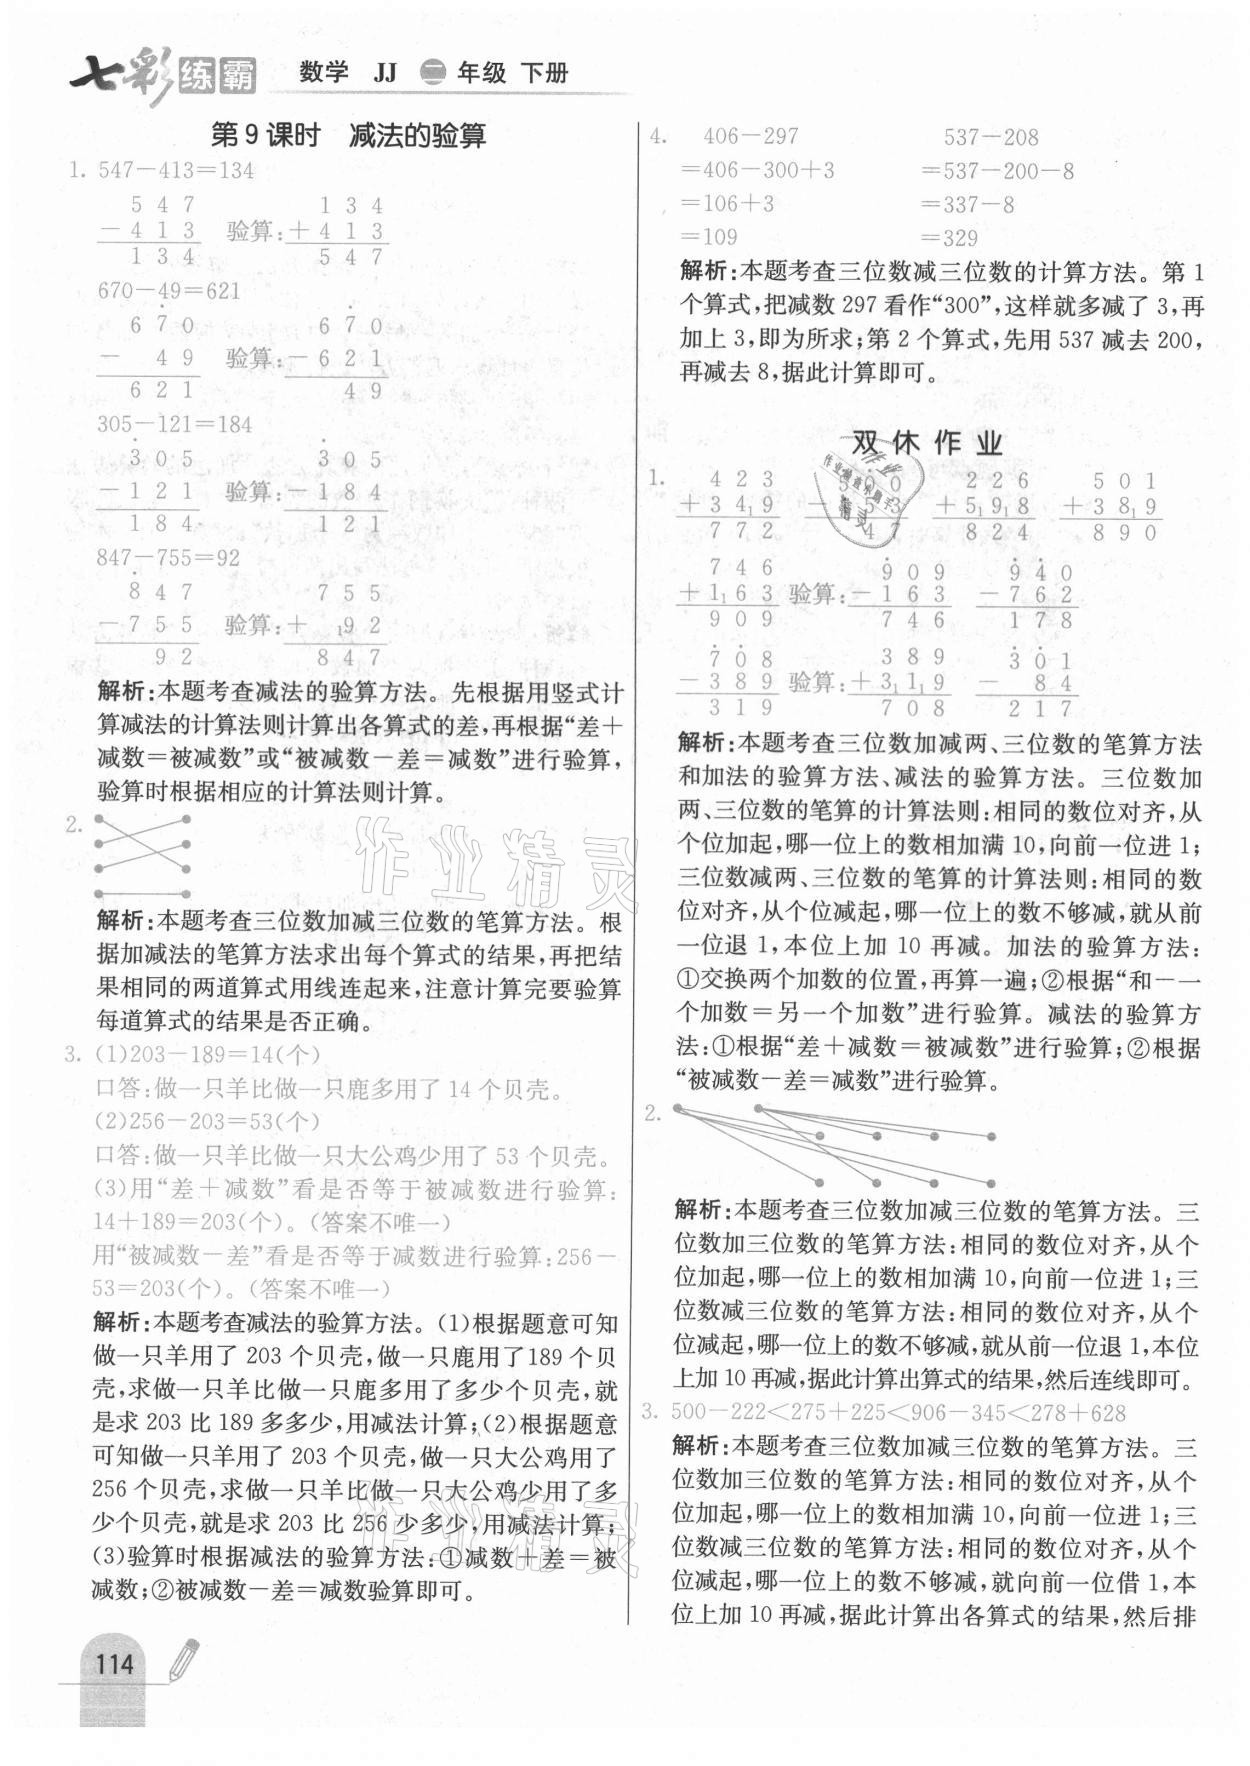 七彩练霸 数学 JJ 二年级 下册
第9课时 减法的验算
1. 547－413＝134
5 4 7 1 3 4
－4 1 3 验算:＋4 1 3
1 3 4 5 4 7
670－49＝621
6 7 0 6 7 0
－ 4 9 验算:－6 2 1
6 2 1 4 9
305－121＝184
3 0 5 3 0 5
－1 2 1 验算:－1 8 4
1 8 4 1 2 1
847－755＝92
8 4 7 7 5 5
－7 5 5 验算:＋ 1 9 2
9 2 8 4 7
解析:本题考查减法的验算方法。先根据用竖式计
算减法的计算法则计算出各算式的差,再根据“差＋
减数＝被减数”或“被减数－差＝减数”进行验算,
验算时根据相应的计算法则计算。
2.
解析:本题考查三位数加减三位数的笔算方法。根
据加减法的笔算方法求出每个算式的结果,再把结
果相同的两道算式用线连起来,注意计算完要验算
每道算式的结果是否正确。
3. (1)203－189＝14(个)
口答:做一只羊比做一只鹿多用了 14 个贝壳。
(2)256－203＝53(个)
口答:做一只羊比做一只大公鸡少用了 53 个贝壳。
(3)用“差＋减数”看是否等于被减数进行验算:
14＋189＝203(个)。(答案不唯一)
用“被减数－差”看是否等于减数进行验算:256－
53＝203(个)。(答案不唯一)
解析:本题考查减法的验算方法。(1)根据题意可知
做一只羊用了 203 个贝壳,做一只鹿用了189 个贝
壳,求做一只羊比做一只鹿多用了多少个贝壳,就
是求 203 比 189 多多少,用减法计算;(2)根据题意
可知做一只羊用了 203 个贝壳,做一只大公鸡用了
256 个贝壳,求做一只羊比做一只大公鸡少用了多
少个贝壳,就是求 203 比 256 少多少,用减法计算;
(3)验算时根据减法的验算方法:①减数＋差＝被
减数;②被减数－差＝减数验算即可。
114
4. 406－297 537－208
＝406－300＋3 ＝537－200－8
＝106＋3 ＝337－8
＝109 ＝329
解析:本题考查三位数减三位数的计算方法。第 1
个算式,把减数 297 看作“300”,这样就多减了 3,再
加上 3,即为所求;第 2 个算式,先用 537 减去 200,
再减去 8,据此计算即可。
双休作业
1. 4 2 3 5 0 0 2 2 6 5 0 1
＋3 4 1 9 － 5 3 ＋5 1 9 1 8 ＋3 8 1 9
7 7 2 4 7 8 2 4 8 9 0
7 4 6 9 0 9 9 4 0
＋1 1 6 3 验算:－1 6 3 －7 6 2
9 0 9 7 4 6 1 7 8
7 0 8 3 8 9 3 0 1
－3 8 9 验算:＋3 1 1 1 9 － 8 4
3 1 9 7 0 8 2 1 7
解析:本题考查三位数加减两、三位数的笔算方法
和加法的验算方法、减法的验算方法。三位数加
两、三位数的笔算的计算法则:相同的数位对齐,从
个位加起,哪一位上的数相加满 10,向前一位进 1;
三位数减两、三位数的笔算的计算法则:相同的数
位对齐,从个位减起,哪一位上的数不够减,就从前
一位退 1,本位上加 10 再减。加法的验算方法:
①交换两个加数的位置,再算一遍;②根据“和－一
个加数＝另一个加数”进行验算。减法的验算方
法:①根据“差＋减数＝被减数”进行验算;②根据
“被减数－差＝减数”进行验算。
2.
解析:本题考查三位数加减三位数的笔算方法。三
位数加三位数的笔算方法:相同的数位对齐,从个
位加起,哪一位上的数相加满 10,向前一位进 1;三
位数减三位数的笔算方法:相同的数位对齐,从个
位减起,哪一位上的数不够减,就从前一位退 1,本位
上加 10 再减,据此计算出算式的结果,然后连线即可。
3. 500－222＜275＋225＜906－345＜278＋628
解析:本题考查三位数加减三位数的笔算方法。三
位数加三位数的笔算方法:相同的数位对齐,从个
位加起,哪一位上的数相加满 10,向前一位进 1;三
位数减三位数的笔算方法:相同的数位对齐,从个
位减起,哪一位上的数不够减,就向前一位借 1,本
位上加 10 再减,据此计算出各算式的结果,然后排
作业精灵
作业精灵